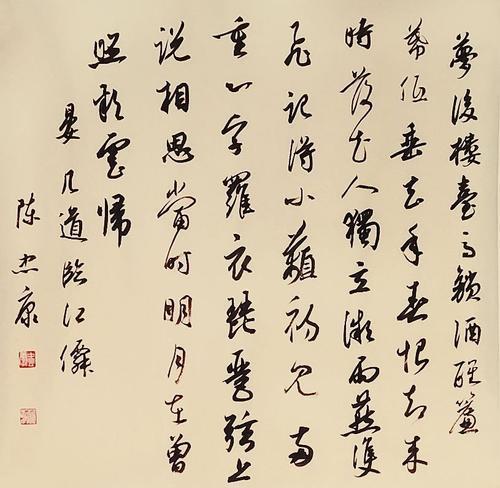 夢後樓臺高鎖酒醒簾
幕低垂去年春恨却来
時落花人獨立微雨燕雙
飛記得小蘋初見兩
重心字羅衣琵琶弦上
说相思當时明月在曾
照彩雲歸
晏几道臨江僊
陈忠康